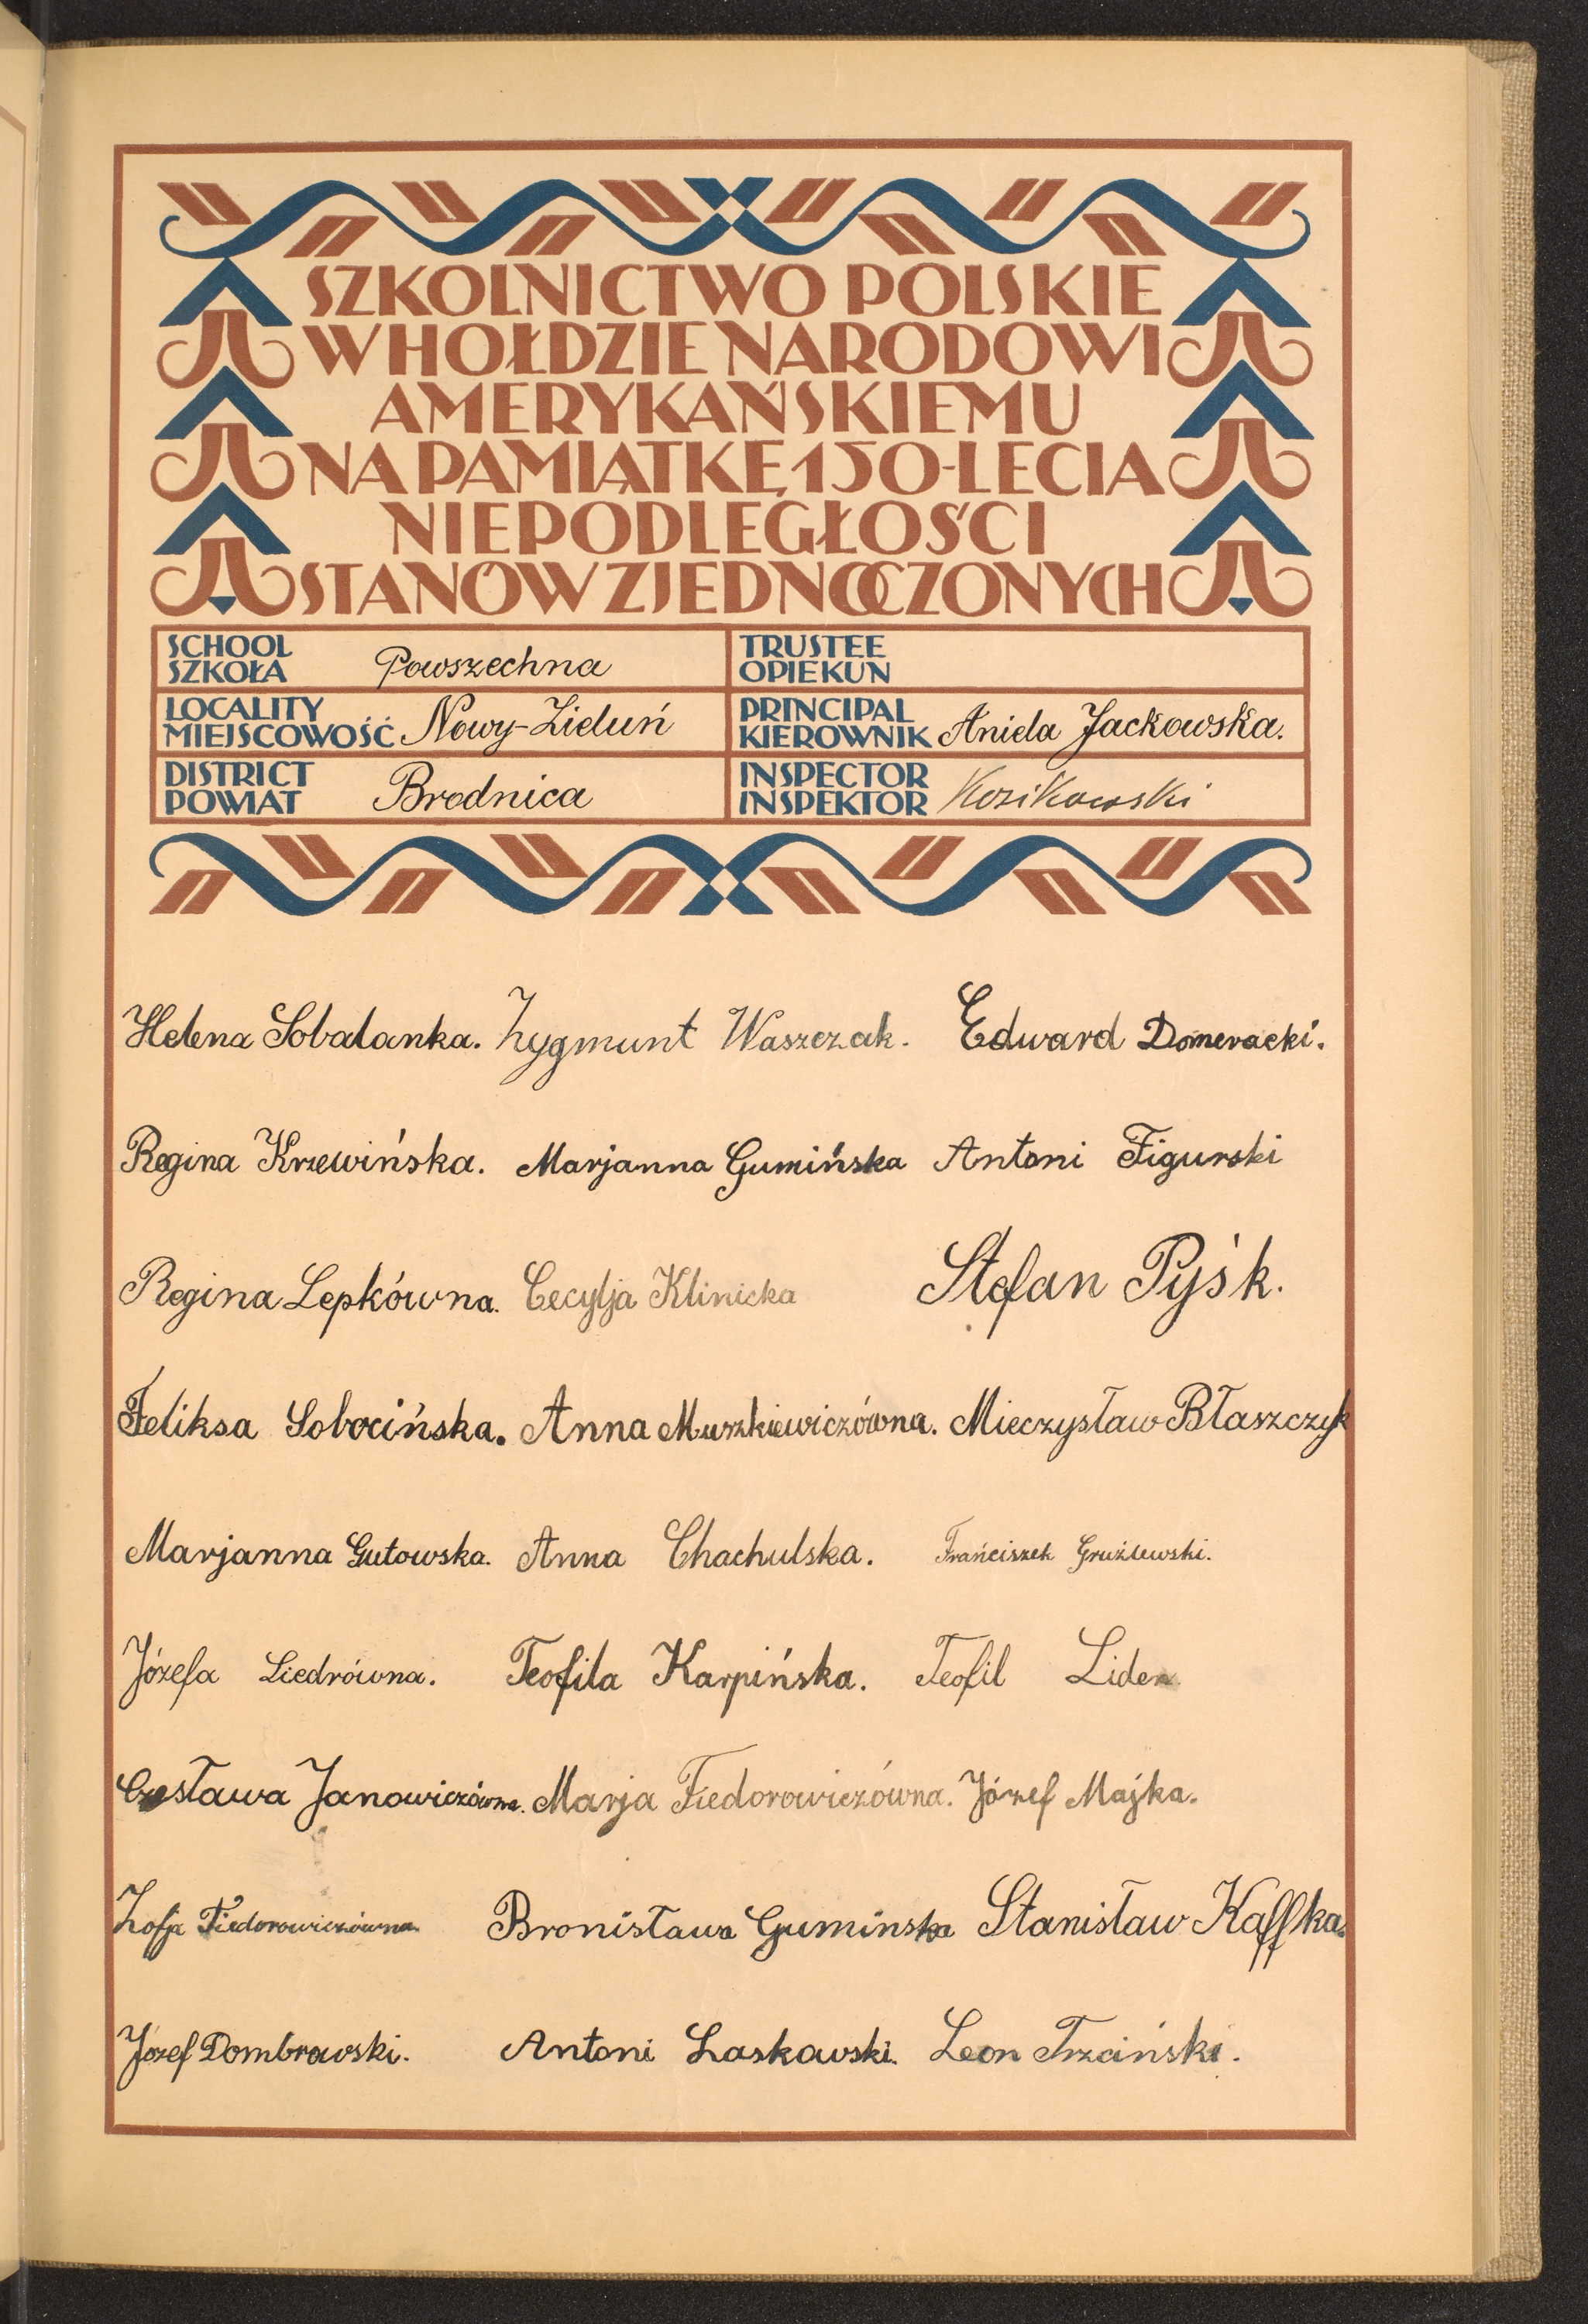 SZKOLNICTWO POLSKIE
W HOŁDZIE NARODOWI
AMERYKAŃSKIEMU
NA PAMIĄTKĘ 150-LECIA
NIEPODLEGŁOŚCI
STANÓW ZJEDNOCZONYCH
SCHOOL
SZKOŁA Powszechna
TRUSTEE
OPIEKUN
LOCALITY
MIEJSCOWOŚĆ Nowy-Zieluń
PRINCIPAL
KIEROWNIK Aniela Jackowska.
DISTRICT
POWIAT Brodnica
INSPECTOR
INSPEKTOR Kozikowski
Helena Sobalanka. Zygmunt Waszczak. Edward Domeracki.
Regina Krzewińska. Marjanna Gumińska Antoni Figurski
Regina Lepkówna. Cecylja Klinicka Stefan Pyśk.
Feliksa Sobocińska. Anna Muszkiewiczówna. Mieczysław Błaszczyk
Marjanna Gutowska. Anna Chachulska. Frańciszek Gruźlewski.
Józefa Liedrówna. Teofila Karpińska. Teofil Lider
Czesława Janowiczówna. Marja Fiedorowiczówna. Józef Majka.
Zofja Fiedorowiczówna. Bronisława Guminska Stanisław Kaffka.
Józef Dombrowski. Antoni Laskowski. Leon Trzciński.